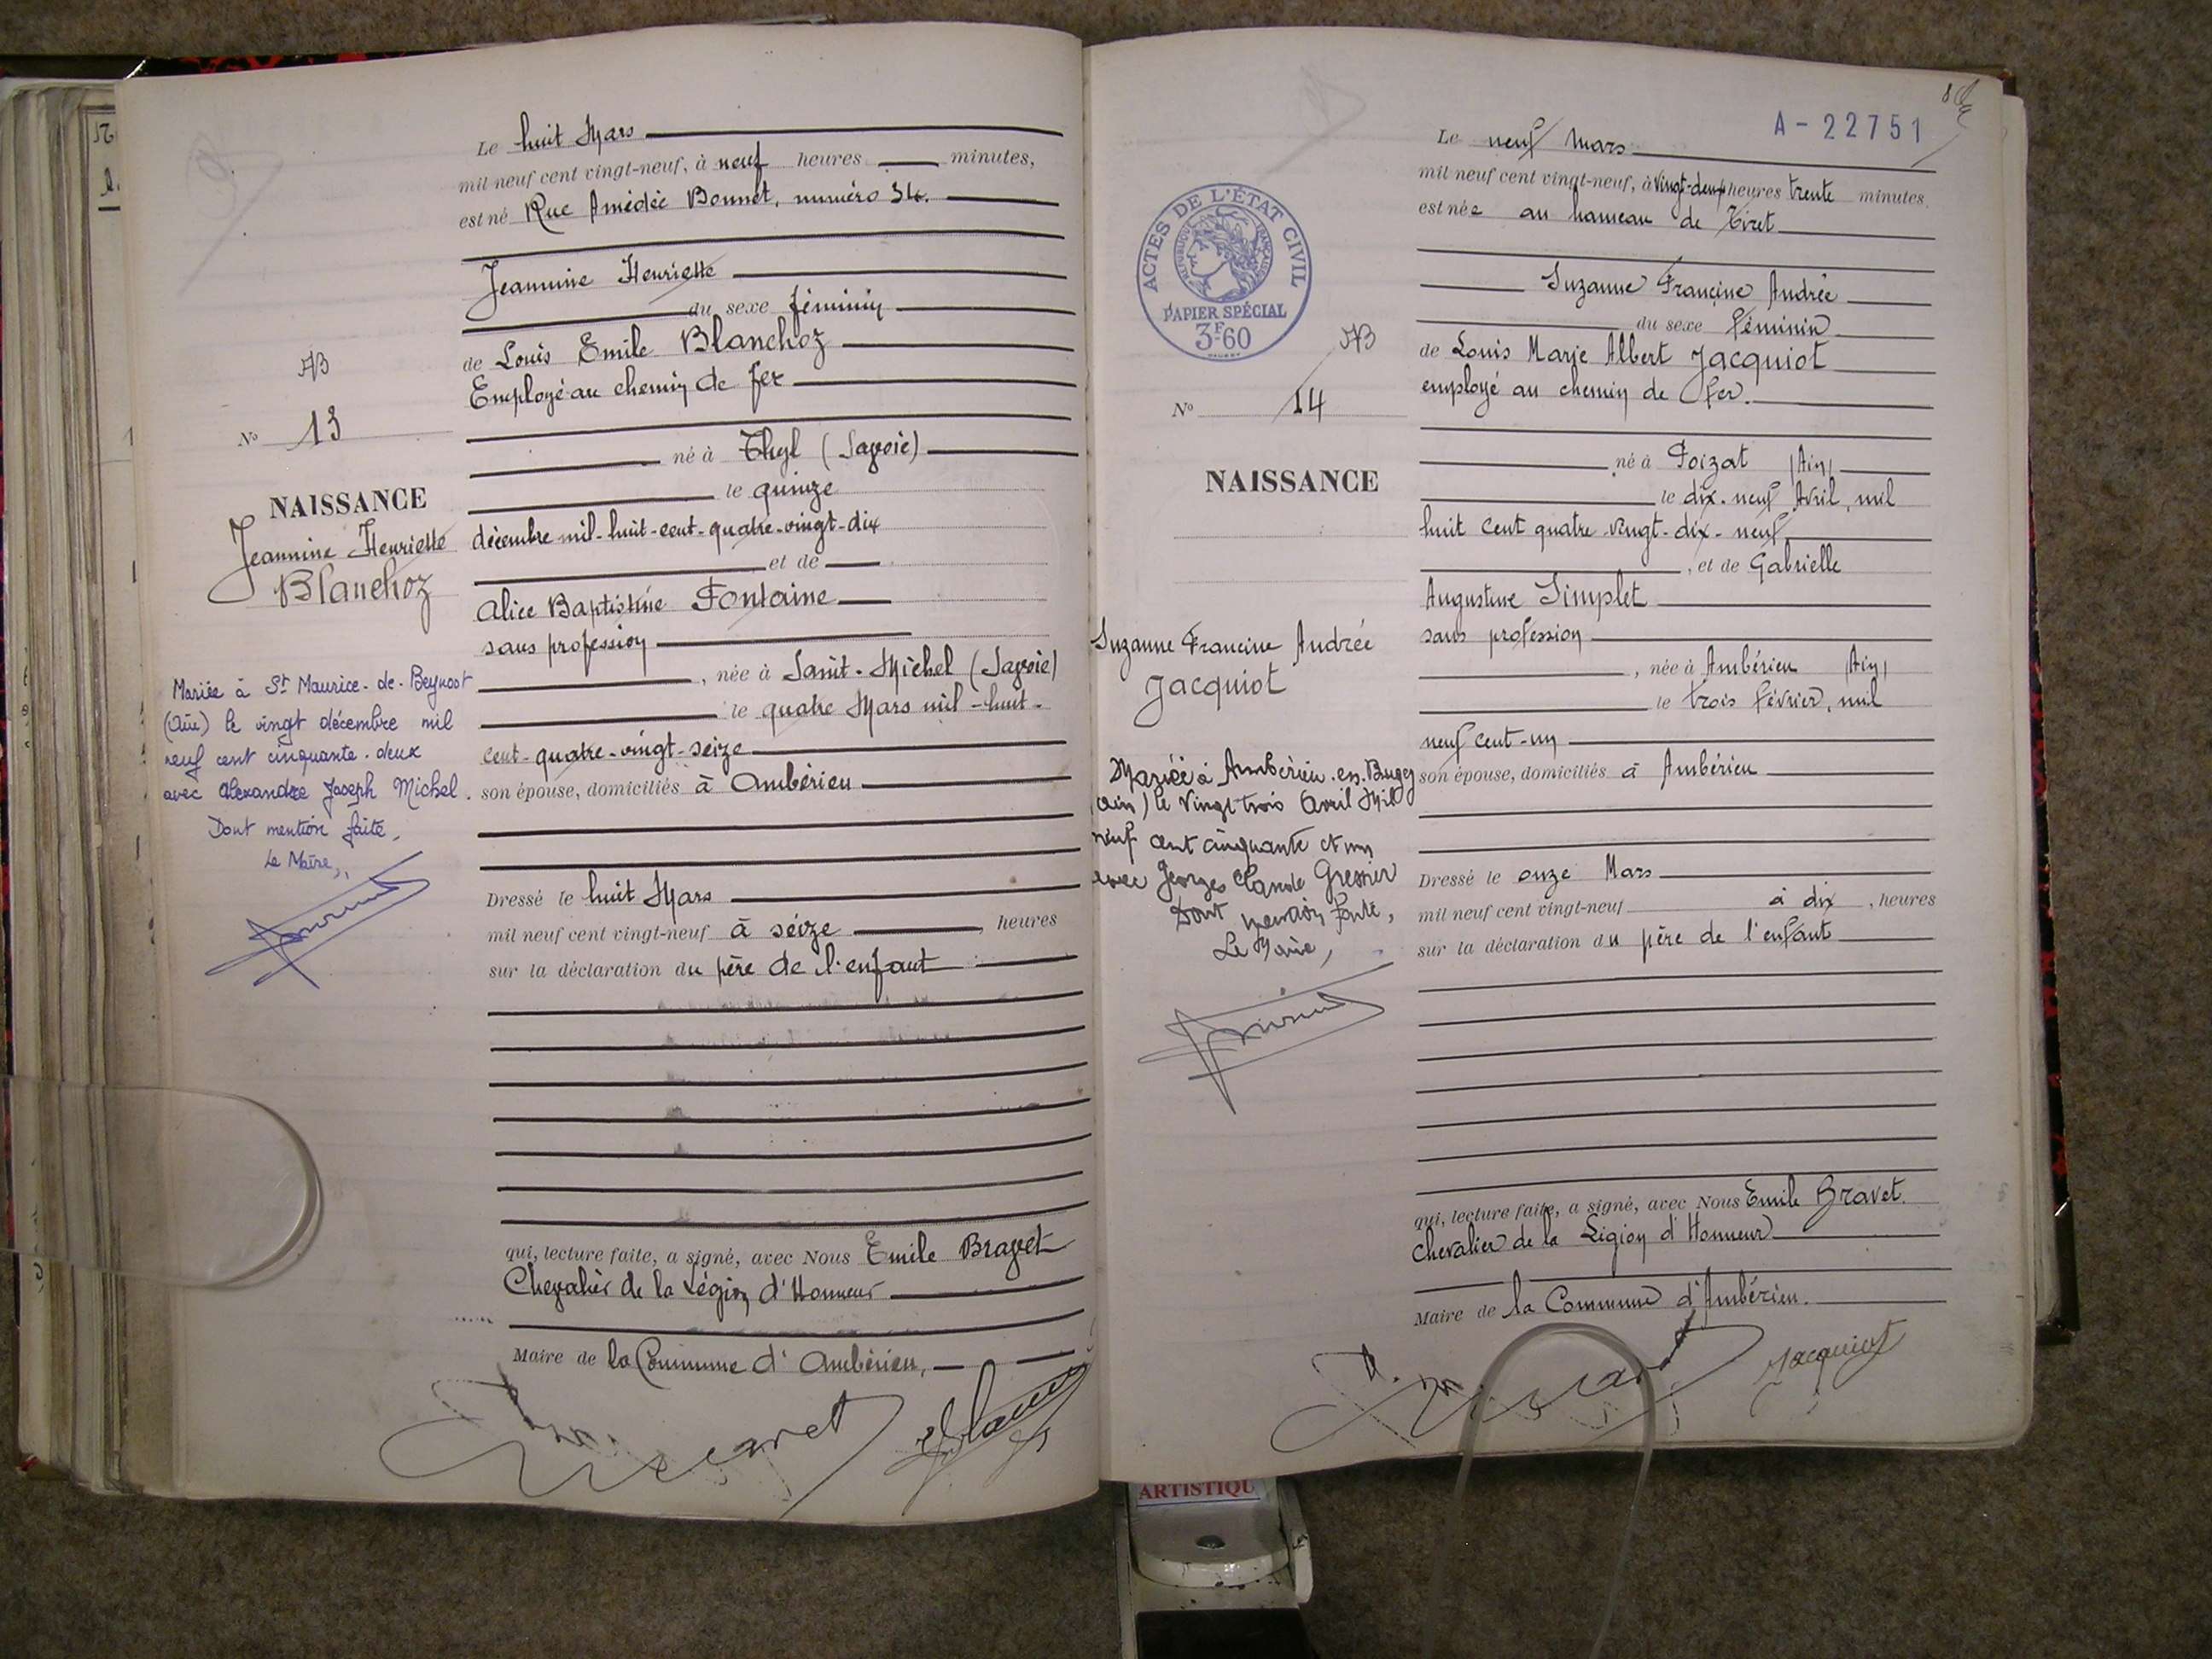 Le huit Mars
mil neuf cent vingt-neuf, à neuf heures minutes,
est né Rue Amédée Bonnet, numéro 34.
Jeannine Henriette
du sexe féminin
de Louis Emile Blanchoz
Employé au chemin de fer
né à Thyl (Savoie)
le quinze
décembre mil-huit-cent-quatre-vingt-dix
et de
Alice Baptistine Fontaine
sans profession
, née à Sanit-Michel (Savoie)
le quatre Mars mil-huit-
cent-quatre-vingt-seize
son épouse, domiciliés à Ambérieu
Dressé le huit Mars
mil neuf cent vingt-neuf à seize , heures
sur la déclaration du père de l'enfant
qui, lecture faite, a signé, avec Nous Emile Bravet
Chevalier de la Légion d'Honneur
Maire de la Commune d'Ambérieu,
AB
No 13
NAISSANCE
Jeannine Henriette
Blanchoz
Mariée à St Maurice-de-Beynost
(Ain) le vingt décembre mil
neuf cent cinquante-deux
avec Alexandre Joseph Michel.
Dont mention faite,
Le Maire,
A-22751
Le neuf Mars
mil neuf cent vingt-neuf, à vingt-deux heures trente minutes.
est née au hameau de Tiret
Suzanne Francine Andrée
du sexe féminin
de Louis Marie Albert Jacquiot
employé au chemin de fer.
né à Poizat (Ain)
le dix-neuf Avril, mil
huit cent quatre-vingt-dix-neuf
, et de Gabrielle
Augustine Simplet
sans profession
, née à Ambérieu (Ain)
le trois février, mil
neuf cent-un
son épouse, domiciliés à Ambérieu
Dressé le onze Mars
mil neuf cent vingt-neuf à dix , heures
sur la déclaration du père de l'enfant
qui, lecture faite, a signé, avec Nous Emile Bravet.
Chevalier de la Légion d'Honneur
Maire de la Commune d'Ambérieu.
Jacquiot
ACTES DE L'ÉTAT CIVIL
RÉPUBLIQUE FRANÇAISE
PAPIER SPÉCIAL
3F60
AB
No 14
NAISSANCE
Suzanne Francine Andrée
Jacquiot
Mariée à Ambérieu-en-Bugey
(Ain) le Vingt trois Avril Mil
neuf cent cinquante et un
avec Georges Claude
Dont mention faite,
Le Maire,
ARTISTIQU